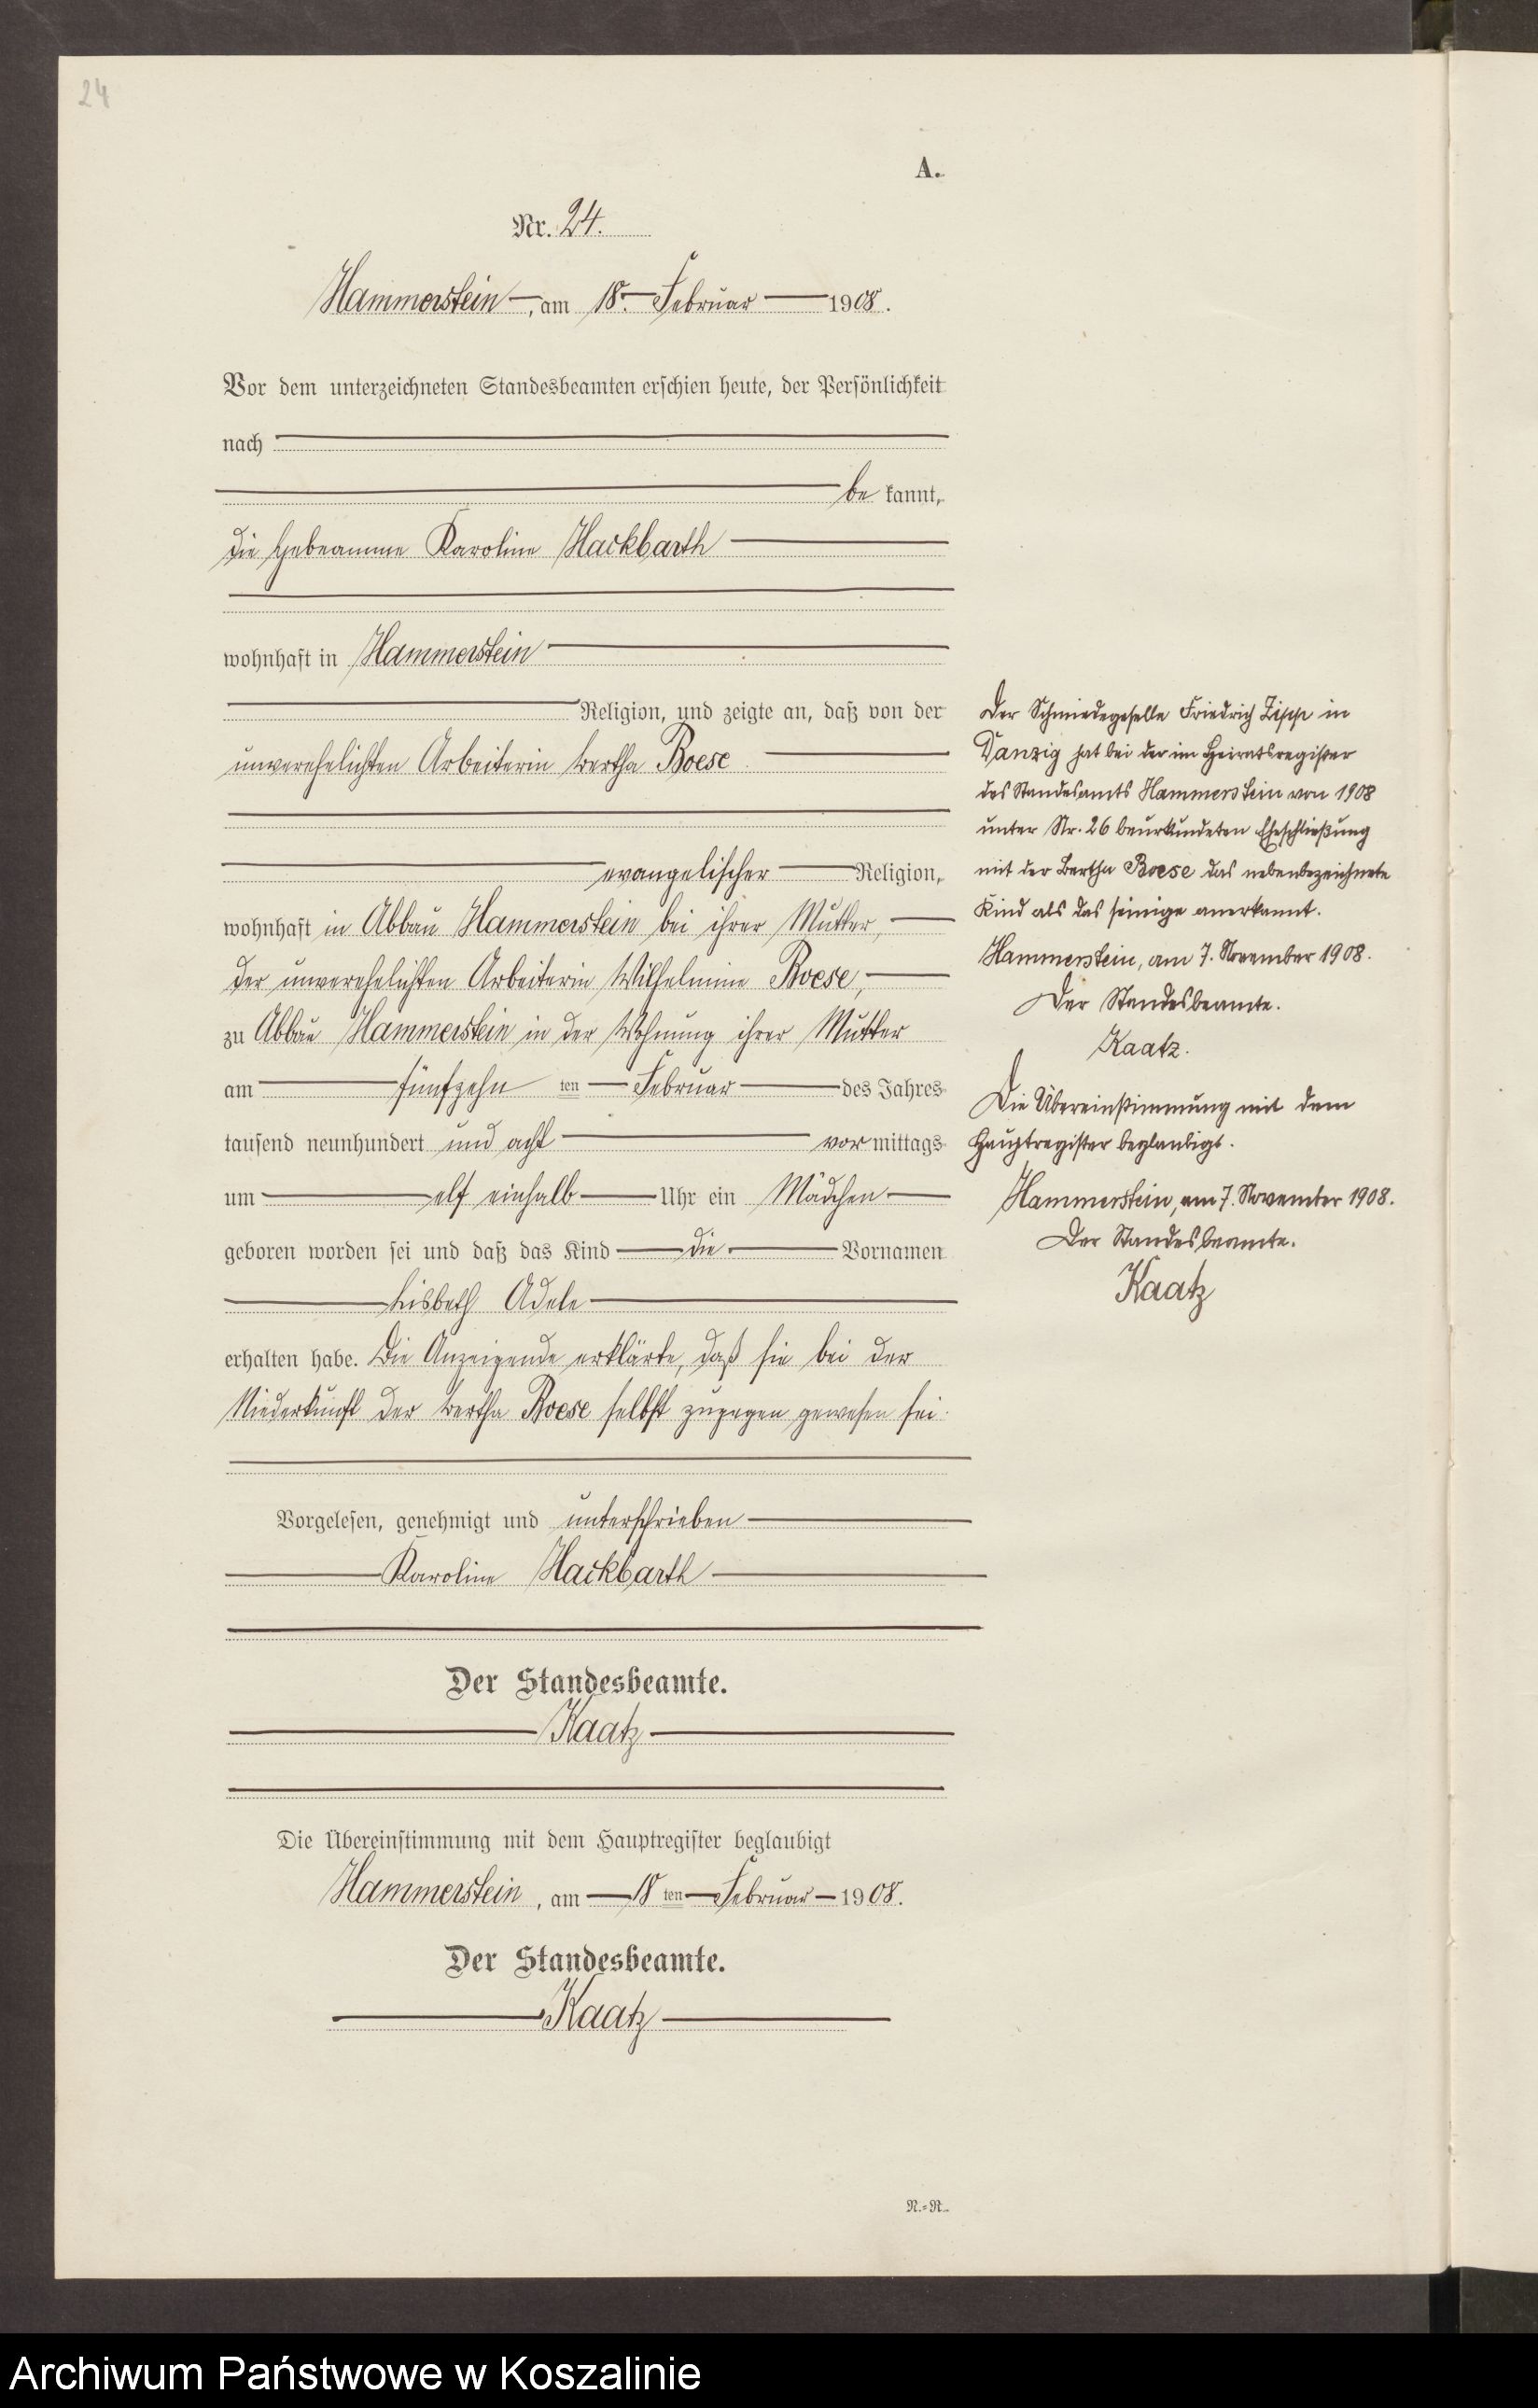 24
A.
Nr. 24.
Hammerstein, am 18. Februar 1908.
Vor dem unterzeichneten Standesbeamten erschien heute, der Persönlichkeit
nach
be kannt,
die Hebeamme Karoline Hackbarth
wohnhaft in Hammerstein
Religion, und zeigte an, daß von der
unverehelichten Arbeiterin Bertha Boese
evangelischer Religion,
wohnhaft in Abbau Hammerstein bei ihrer Mutter,
der unverehelichten Arbeiterin Wilhelmine Boese,
zu Abbau Hammerstein in der Wohnung ihrer Mutter
am fünfzehn ten Februar des Jahres
tausend neunhundert und acht vor mittags
um elf einhalb Uhr ein Mädchen
geboren worden sei und daß das Kind die Vornamen
Lisbeth Adele
erhalten habe. Die Anzeigende erklärte, daß sie bei der
Niederkunft der Bertha Boese selbst zugegen gewesen sei.
Vorgelesen, genehmigt und unterschrieben
Karoline Hackbarth
Der Standesbeamte.
Kaatz
Die Übereinstimmung mit dem Hauptregister beglaubigt
Hammerstein, am 18 ten Februar 1908.
Der Standesbeamte.
Kaatz
N.=R.
Der Schmiedegeselle Friedrich Zipp in
Danzig hat bei der im Heiratsregister
des Standesamts Hammerstein von 1908
unter Nr. 26 beurkundeten Eheschließung
mit der Bertha Boese das nebenbezeichnete
Kind als das seinige anerkannt.
Hammerstein, am 7. November 1908.
Der Standesbeamte.
Kaatz.
Die Übereinstimmung mit dem
Hauptregister beglaubigt.
Hammerstein, am 7. November 1908.
Der Standesbeamte.
Kaatz
Archiwum Państwowe w Koszalinie